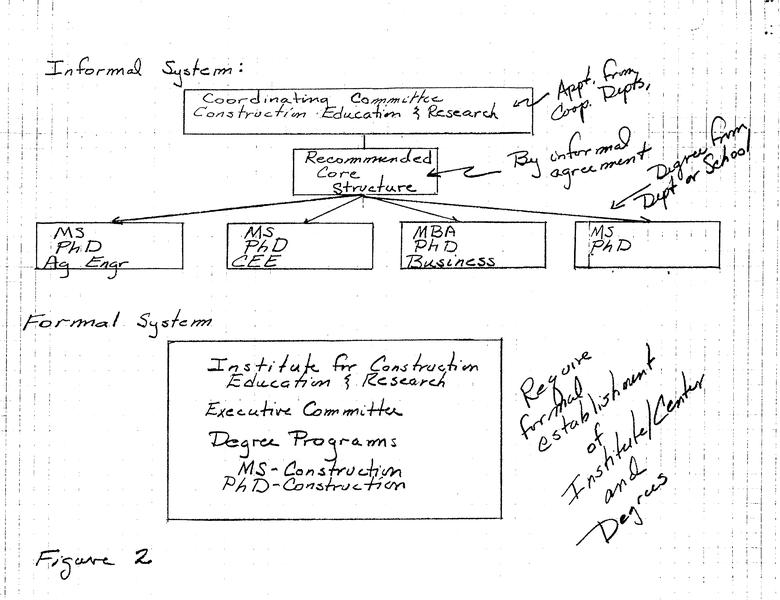 Informal System:
Coordinating Committee
Construction Education & Research
Appt. from
Coop. Depts,
Recommended
Core
Structure
By informal
agreement
Degree from
Dept or School
MS
PhD
Ag Engr
MS
PhD
CEE
MBA
PhD
Business
MS
PhD
Formal System
Institute for Construction
Education & Research
Executive Committee
Degree Programs
MS-Construction
PhD-Construction
Require
formal
establishment
of
Institute/Center
and
Degrees
Figure 2